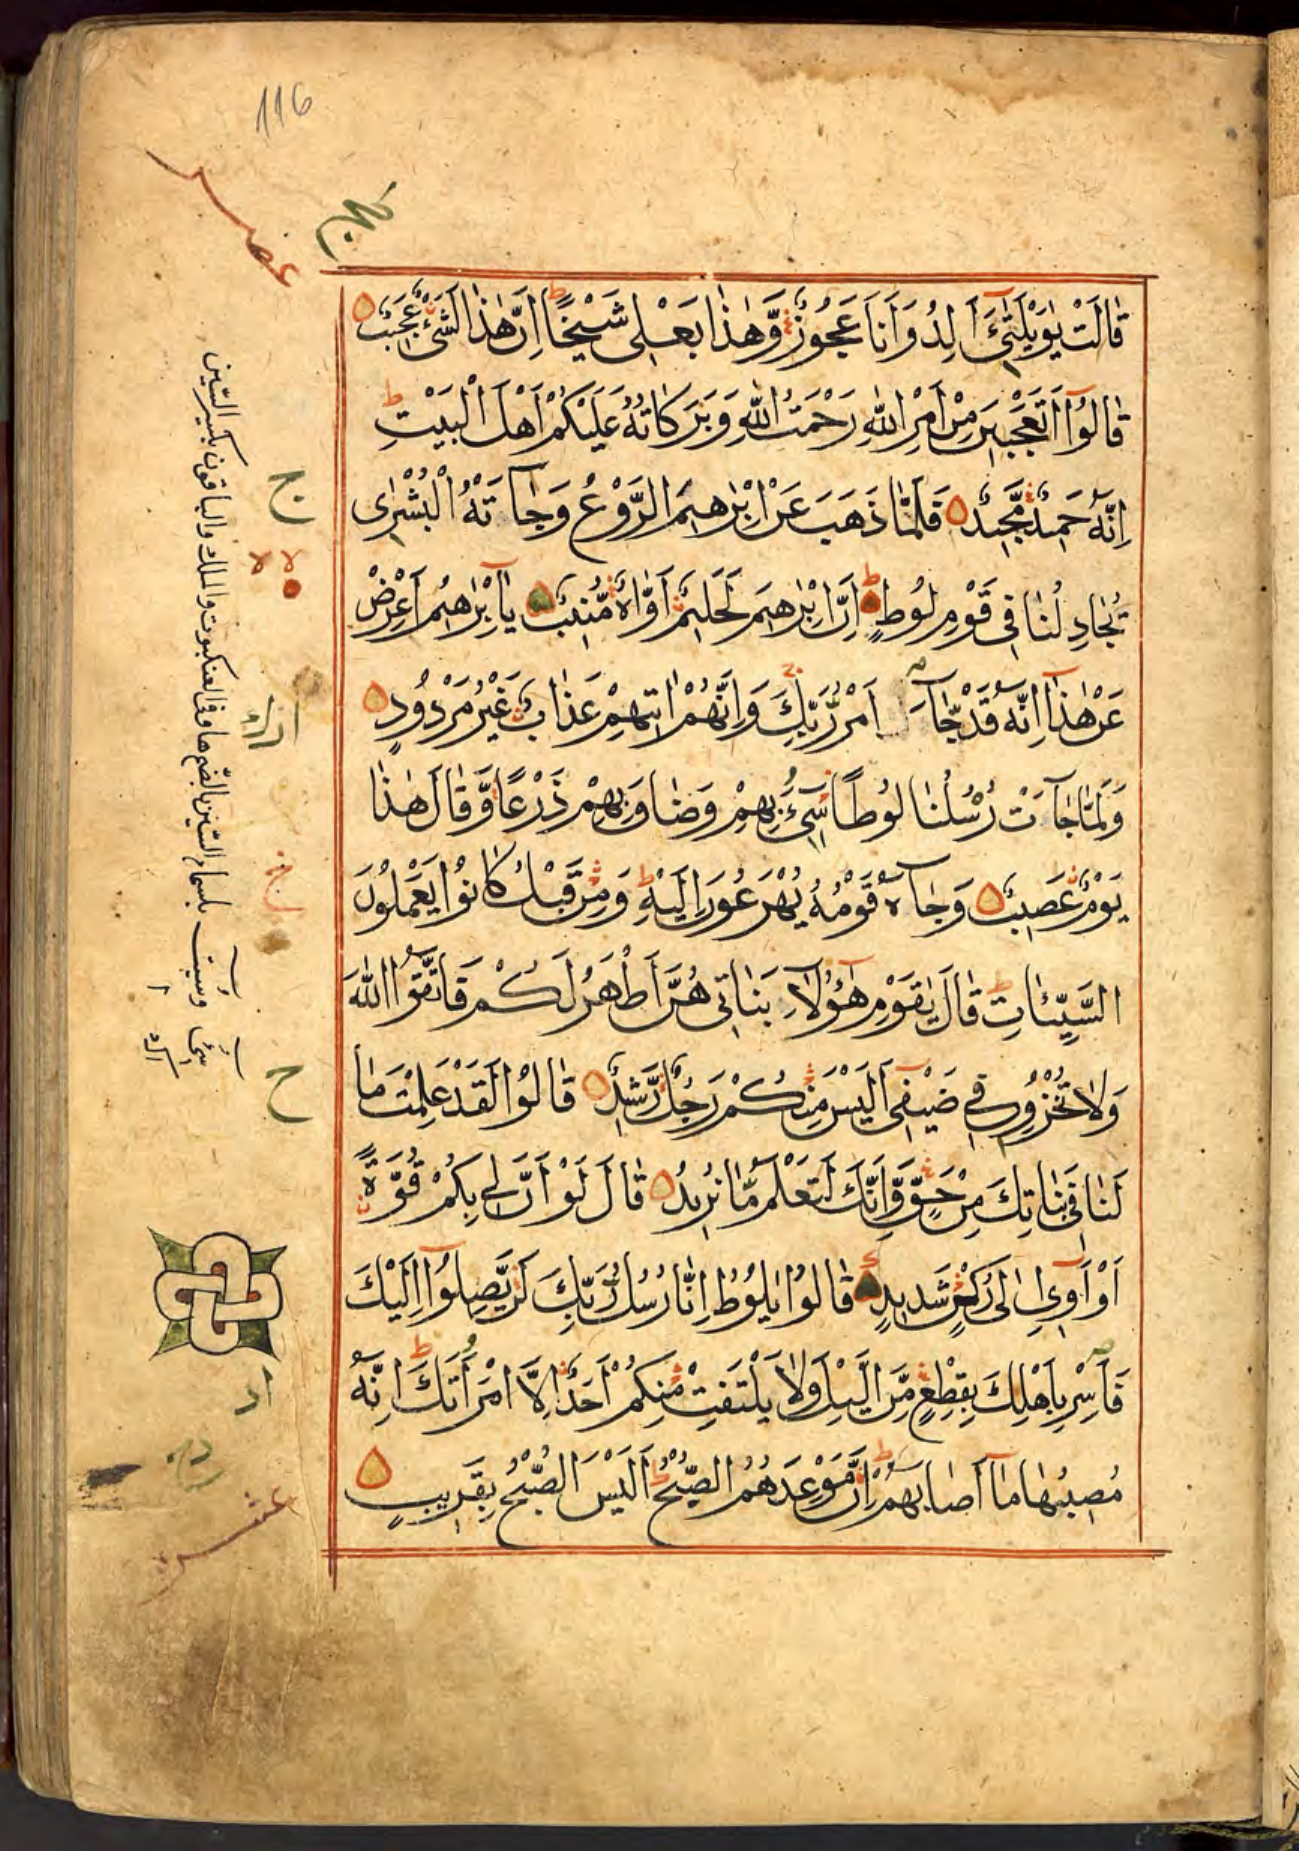 116
عصر
قَالَتْ يٰوَيْلَتٰٓى ءَاَلِدُ وَاَنَا عَجُوزٌ وَّهٰذَا بَعْلٖى شَيْخًا ط اِنَّ هٰذَا لَشَىْءٌ عَجٖيبٌ
قَالُوٓا اَتَعْجَبٖينَ مِنْ اَمْرِ اللّٰهِ رَحْمَتُ اللّٰهِ وَبَرَكَاتُهُ عَلَيْكُمْ اَهْلَ الْبَيْتِ ط
اِنَّهُ حَمٖيدٌ مَّجٖيدٌ فَلَمَّا ذَهَبَ عَنْ اِبْرٰهٖيمَ الرَّوْعُ وَجَآءَتْهُ الْبُشْرٰى
يُجَادِلُنَا فٖى قَوْمِ لُوطٍ ط اِنَّ اِبْرٰهٖيمَ لَحَلٖيمٌ اَوَّاهٌ مُّنٖيبٌ يَآ اِبْرٰهٖيمُ اَعْرِضْ
عَنْ هٰذَآ اِنَّهُ قَدْ جَآءَ اَمْرُ رَبِّكَ ج وَاِنَّهُمْ اٰتٖيهِمْ عَذَابٌ غَيْرُ مَرْدُودٍ
وَلَمَّا جَآءَتْ رُسُلُنَا لُوطًا سٖٓىءَ بِهِمْ وَضَاقَ بِهِمْ ذَرْعًا وَّقَالَ هٰذَا
يَوْمٌ عَصٖيبٌ وَجَآءَهُ قَوْمُهُ يُهْرَعُونَ اِلَيْهِ ط وَمِنْ قَبْلُ كَانُوا يَعْمَلُونَ
السَّيِّئَاتِ ط قَالَ يٰقَوْمِ هٰٓؤُلَآءِ بَنَاتٖى هُنَّ اَطْهَرُ لَكُمْ فَاتَّقُوا اللّٰهَ
وَلَا تُخْزُونِ فٖى ضَيْفٖى اَلَيْسَ مِنْكُمْ رَجُلٌ رَّشٖيدٌ قَالُوا لَقَدْ عَلِمْتَ مَا
لَنَا فٖى بَنَاتِكَ مِنْ حَقٍّ وَّاِنَّكَ لَتَعْلَمُ مَا نُرٖيدُ قَالَ لَوْ اَنَّ لٖى بِكُمْ قُوَّةً
اَوْ اٰوٖٓى اِلٰى رُكْنٍ شَدٖيدٍ قَالُوا يَا لُوطُ اِنَّا رُسُلُ رَبِّكَ لَنْ يَّصِلُوٓا اِلَيْكَ
فَاَسْرِ بِاَهْلِكَ بِقِطْعٍ مِّنَ الَّيْلِ وَلَا يَلْتَفِتْ مِنْكُمْ اَحَدٌ اِلَّا امْرَاَتَكَ ط اِنَّهُ
مُصٖيبُهَا مَآ اَصَابَهُمْ ط اِنَّ مَوْعِدَهُمُ الصُّبْحُ ط اَلَيْسَ الصُّبْحُ بِقَرٖيبٍ
ج
ح
عشر